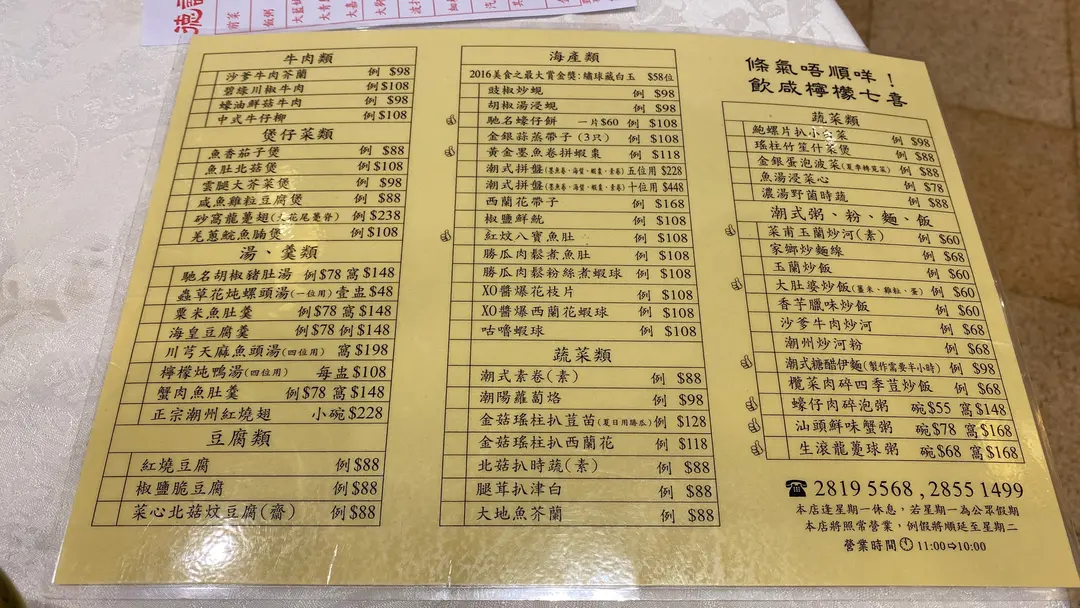 德記
牛肉類
沙爹牛肉芥蘭 例 $98
碧綠川椒牛肉 例 $108
蠔油鮮菇牛肉 例 $98
中式牛仔柳 例 $108
煲仔菜類
魚香茄子煲 例 $88
魚肚北菇煲 例 $108
雲腿大芥菜煲 例 $98
咸魚雞粒豆腐煲 例 $88
砂窩龍躉翅(大花尾躉脊) 例 $238
羌蔥鯇魚腩煲 例 $108
湯、羹類
馳名胡椒豬肚湯 例$78 窩$148
蟲草花炖螺頭湯(一位用) 壹盅 $48
粟米魚肚羹 例$78 窩$148
海皇豆腐羹 例$78 例$148
川芎天麻魚頭湯(四位用) 窩 $198
檸檬炖鴨湯(四位用) 每盅 $108
蟹肉魚肚羹 例$78 窩$148
正宗潮州紅燒翅 小碗$228
豆腐類
紅燒豆腐 例 $88
椒鹽脆豆腐 例 $88
菜心北菇炆豆腐(齋) 例 $88
海產類
2016美食之最大賞金獎:繡球藏白玉 $58位
豉椒炒蜆 例 $98
胡椒湯浸蜆 例 $98
馳名蠔仔餅 一片$60 例 $108
金銀蒜蒸帶子(3只) 例 $108
黃金墨魚卷拼蝦棗 例 $118
潮式拼盤(墨魚卷、海蜇、蝦棗、素卷) 五位用 $228
潮式拼盤(墨魚卷、海蜇、蝦棗、素卷) 十位用 $448
西蘭花帶子 例 $168
椒鹽鮮魷 例 $108
紅炆八寶魚肚 例 $108
勝瓜肉鬆煮魚肚 例 $108
勝瓜肉鬆粉絲煮蝦球 例 $108
XO醬爆花枝片 例 $108
XO醬爆西蘭花蝦球 例 $108
咕嚕蝦球 例 $108
蔬菜類
潮式素卷(素) 例 $88
潮陽蘿蔔烙 例 $98
金菇瑤柱扒荳苗(夏日用勝瓜) 例 $128
金菇瑤柱扒西蘭花 例 $118
北菇扒時蔬(素) 例 $88
腿茸扒津白 例 $88
大地魚芥蘭 例 $88
條氣唔順咩!
飲咸檸檬七喜
蔬菜類
鮑螺片扒小白菜 例 $98
瑤柱竹笙什菜煲 例 $88
金銀蛋泡波菜(夏季轉莧菜) 例 $88
魚湯浸菜心 例 $78
濃湯野菌時蔬 例 $88
潮式粥、粉、麵、飯
菜甫玉蘭炒河(素) 例 $60
家鄉炒麵線 例 $68
玉蘭炒飯 例 $60
大肚婆炒飯(薑米、雞粒、蛋) 例 $60
香芋臘味炒飯 例 $60
沙爹牛肉炒河 例 $68
潮州炒河粉 例 $68
潮式糖醋伊麵(製作需要半小時) 例 $98
欖菜肉碎四季荳炒飯 例 $68
蠔仔肉碎泡粥 碗$55 窩$148
汕頭鮮味蟹粥 碗$78 窩$168
生滾龍躉球粥 碗$68 窩$168
☎ 2819 5568 , 2855 1499
本店逢星期一休息，若星期一為公眾假期
本店將照常營業，例假將順延至星期二
營業時間 11:00⇨10:00